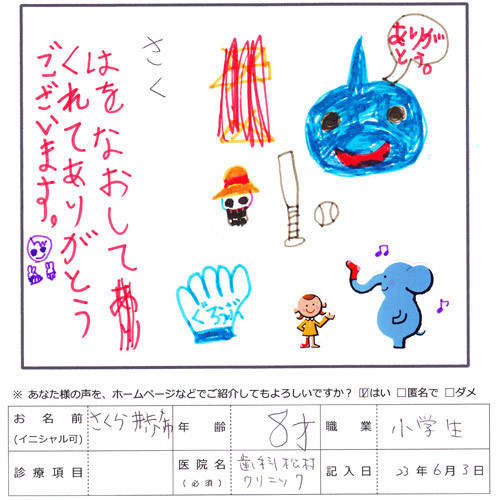 ありがとう。
さく
はをなおして
くれてありがとう
ございます。
ぐろーぶ
※ あなた様の声を、ホームページなどでご紹介してもよろしいですか? ☑はい □匿名で □ダメ
お名前 (イニシャル可) さくら 年齢 8才 職業 小学生
診療項目 医院名 (必須) 歯科松村クリニック 記入日 23年6月3日